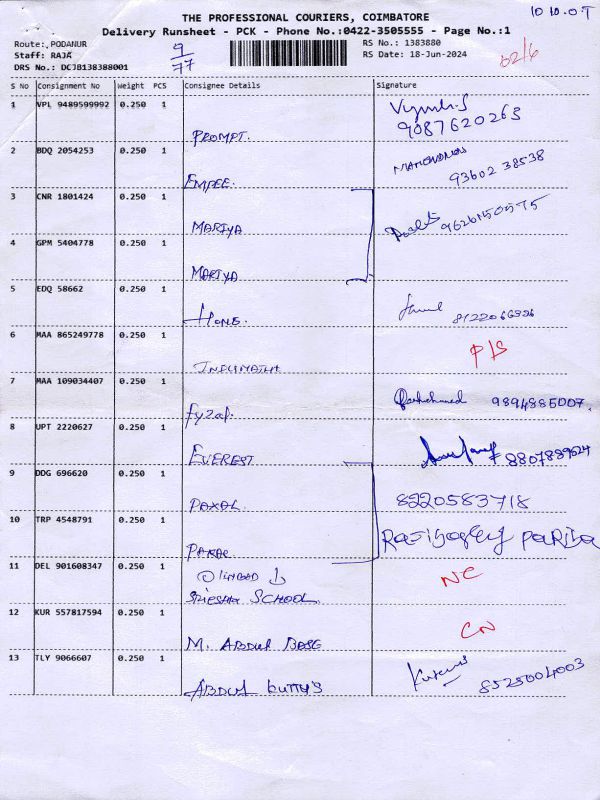 10 10.0T
THE PROFESSIONAL COURIERS, COIMBATORE
Delivery Runsheet - PCK - Phone No.:0422-3505555 - Page No.:1
Route:,PODANUR
Staff: RAJA
DRS No.: DCJB138388001
9/77
RS No.: 1383880
RS Date: 18-Jun-2024
02/6
S No Consignment No Weight PCS Consignee Details Signature
1 VPL 9489599992 0.250 1 PROMPT. 9087620263
2 BDQ 2054253 0.250 1 EMPEE. 93602 38538
3 CNR 1801424 0.250 1 MARIYA 9626150575
4 GPM 5404778 0.250 1 MARIYA
5 EDQ 58662 0.250 1 HONE.
6 MAA 865249778 0.250 1 P/S
7 MAA 109034407 0.250 1 fyzal. 9894885007.
8 UPT 2220627 0.250 1 EVEREST 8807889624
9 DDG 696620 0.250 1 PAXAL 8220583718
10 TRP 4548791 0.250 1
11 DEL 901608347 0.250 1 SRIESHA SCHOOL NC
12 KUR 557817594 0.250 1 M. ABDUL BASE CN
13 TLY 9066607 0.250 1 ABDUL KUTTY'S 8525004003